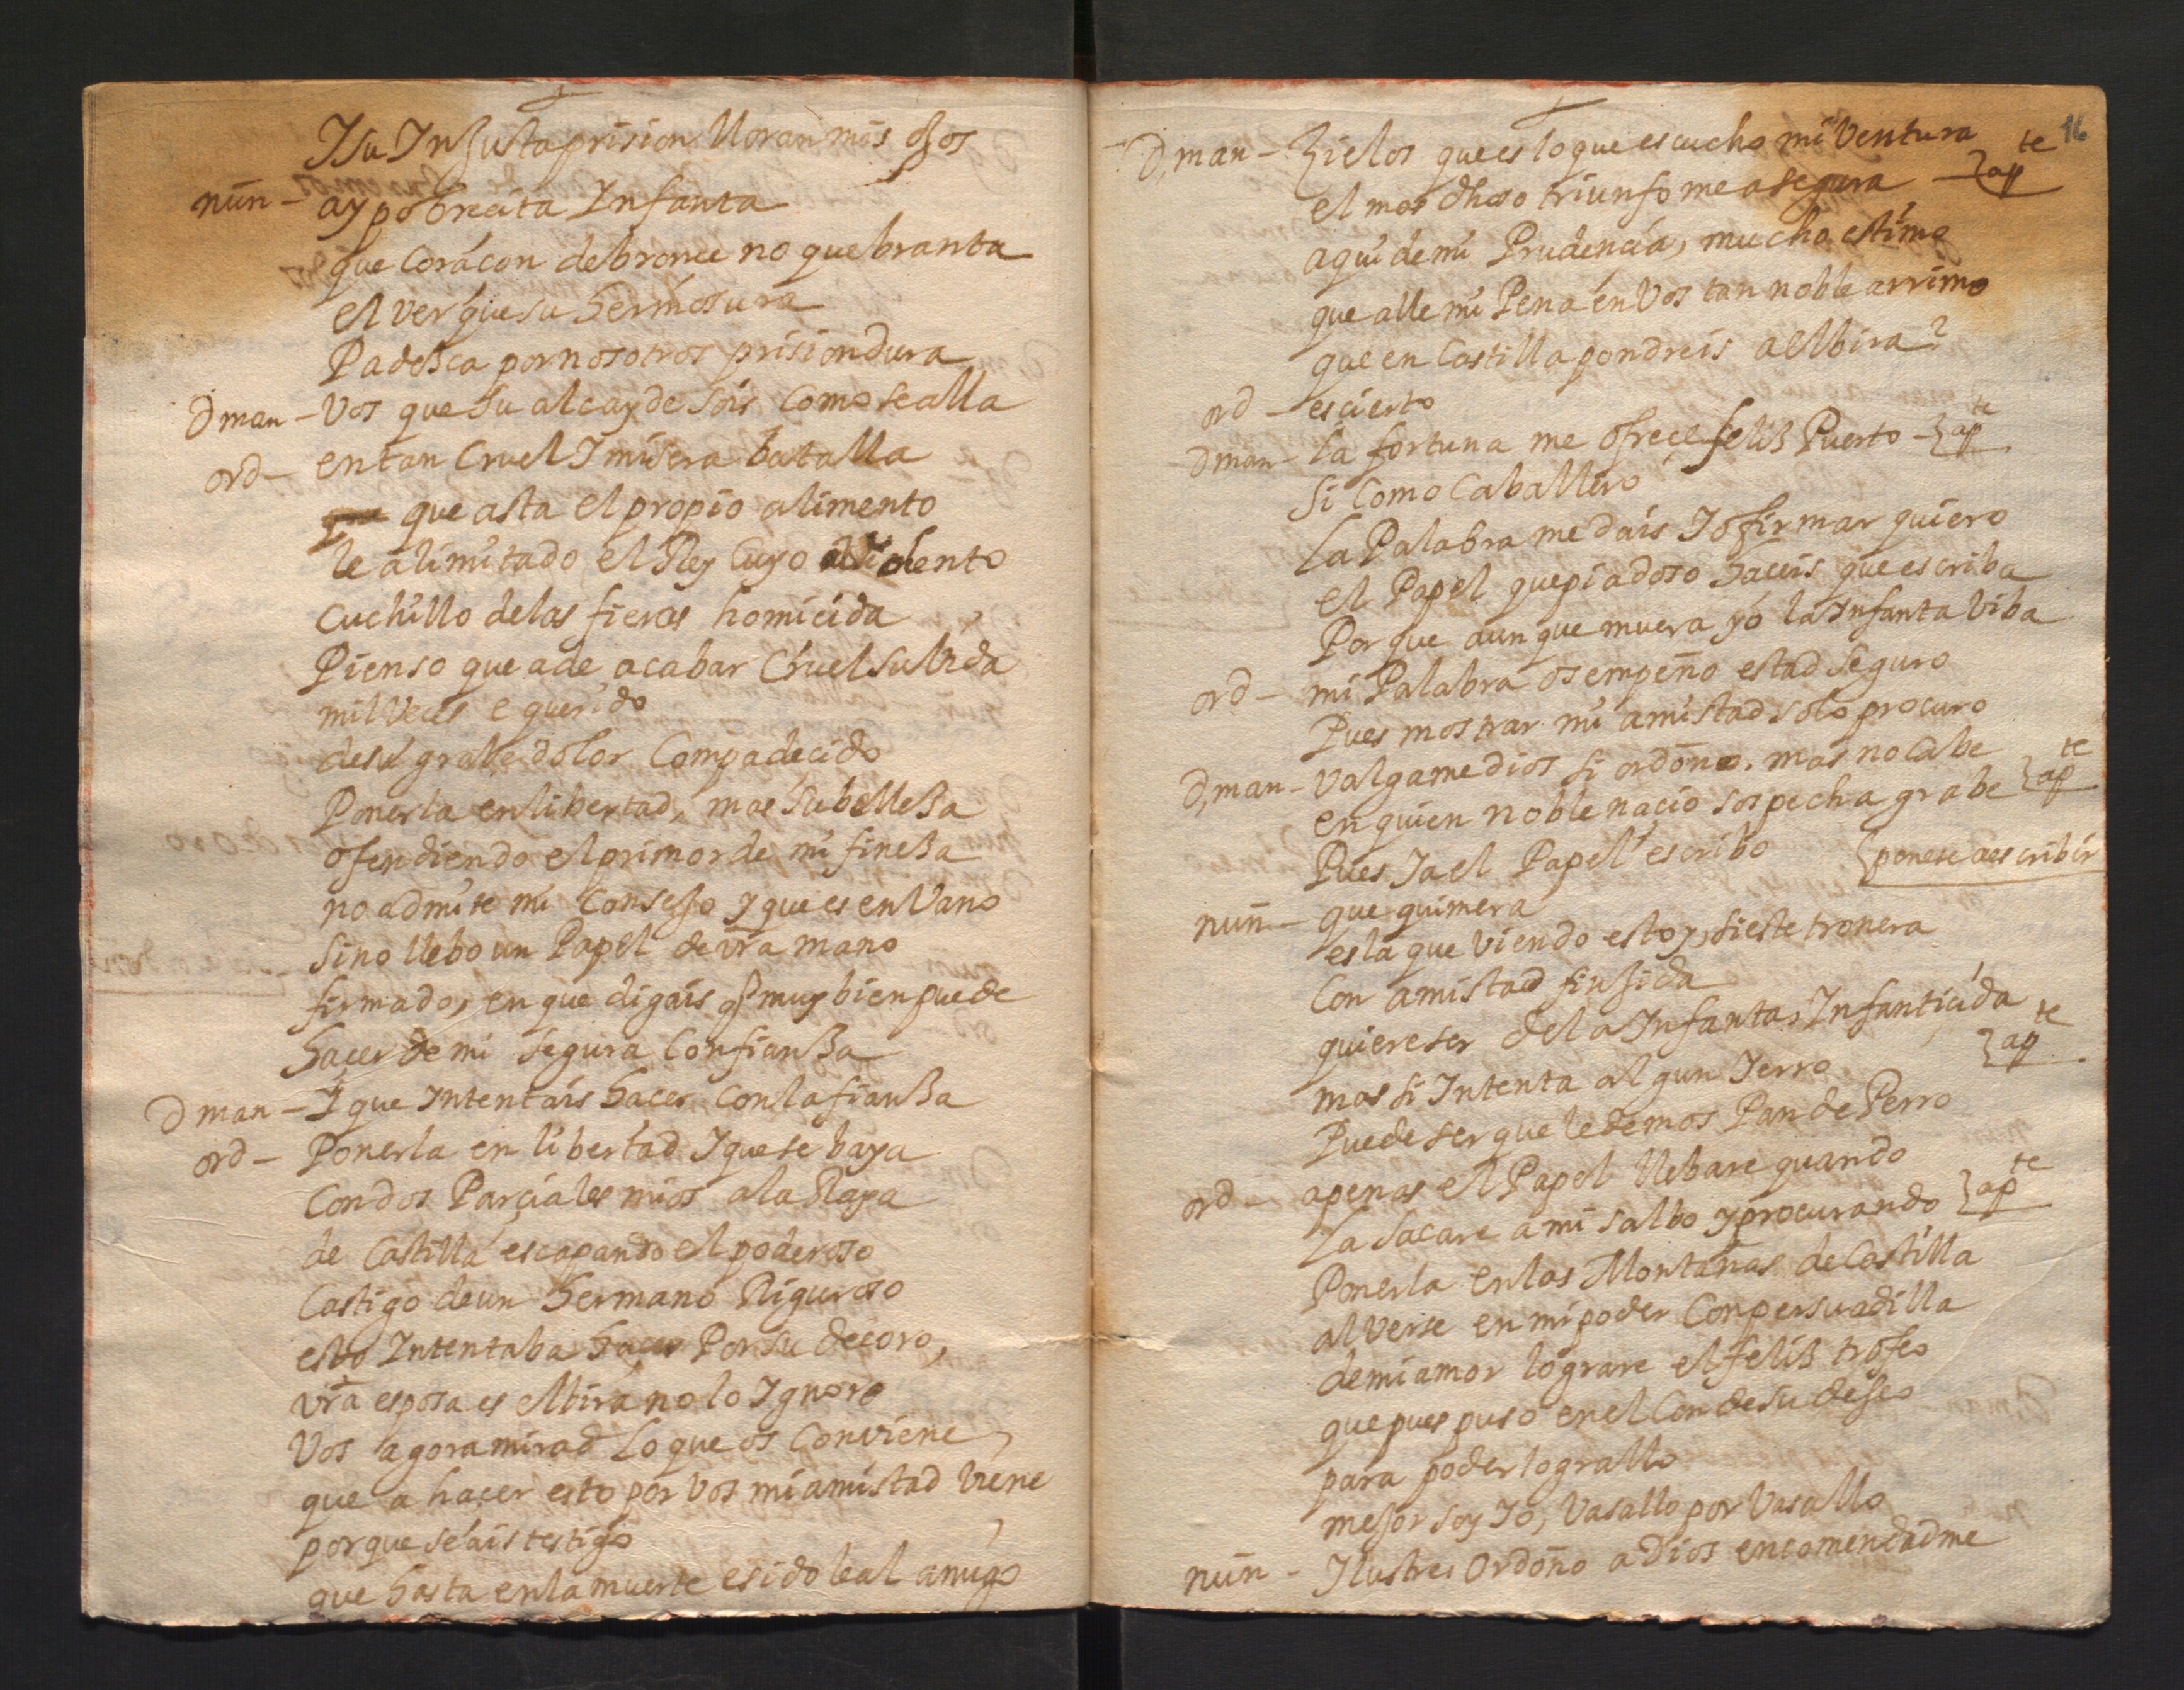 I su Injusta prision lloran mis ojos
nuñ - ay pobrecita Infanta
que Coraçon de bronce no quebranta
el ver que su hermosura
Padesca por nosotros prision dura
D man - Vos que su alcayde sois Como se alla
ord - en tan Cruel I misera batalla
que asta el propio alimento
le a limitado el Rey Cuyo violento
Cuchillo de las fieras homicida
Pienso que a de acabar Cruel su bida
mil Veces e querido
de su grabe dolor Compadecido
Ponerla en libertad, mas su bellesa
ofendiendo el primor de mi finesa
no admite mi Consejo y que es en Vano
sino llebo un Papel de vra mano
firmado, en que digais q muy bien puede
hacer de mi segura Confiansa
D man - I que Intentais hacer con la fiansa
ord - Ponerla en libertad I que se baya
Con dos Parciales mios a la Raya
de Castilla escapando el poderoso
Castigo de un hermano Riguroso
esto Intentaba hacer Por su decoro,
vra esposa es elbira no lo Ignoro
Vos agora mirad Lo que os Conviene
que a hacer esto por Vos mi amistad viene
porque seais testigo
que hasta en la muerte e sido leal amigo
16
D, man - Zielos que es lo que escucho mi Ventura
el mas dhoso triunfo me asegura - } ap te
aqui de mi Prudencia, mucho estimo
que alle mi Pena en Vos tan noble arrimo
que en Castilla pondreis a elbira?
ord - es cierto
D man - La fortuna me ofrece felis Puerto - } ap te
si Como Caballero
La Palabra me dais Io firmar quiero
el Papel que piadoso haceis que escriba
Por que aunque muera yo la Infanta Viba
ord - mi Palabra os empeño estad seguro
Pues mostrar mi amistad solo procuro
D, man - Valgame dios si ordoño. mas no Cabe
en quien noble nacio sospecha grabe } ap te
Pues Ia el Papel escribo { ponese a escribir
nuñ - que quimera
es la que viendo estoy, si este tronera
Con amistad finjida
quiere ser de la Infanta, Infanticida
mas si Intenta algun Ierro } ap te
Puede ser que le demos Pan de Perro
ord - apenas el Papel llebare quando
La sacare a mi salbo y procurando } ap te
Ponerla en las Montañas de Castilla
al verse en mi poder Con persuadilla
de mi amor lograre el felis trofeo
que pues puso en el Conde su deseo
para poder lograllo
mejor soy Io, Vasallo por Vasallo
nuñ - Ilustre Ordoño a Dios encomendadme